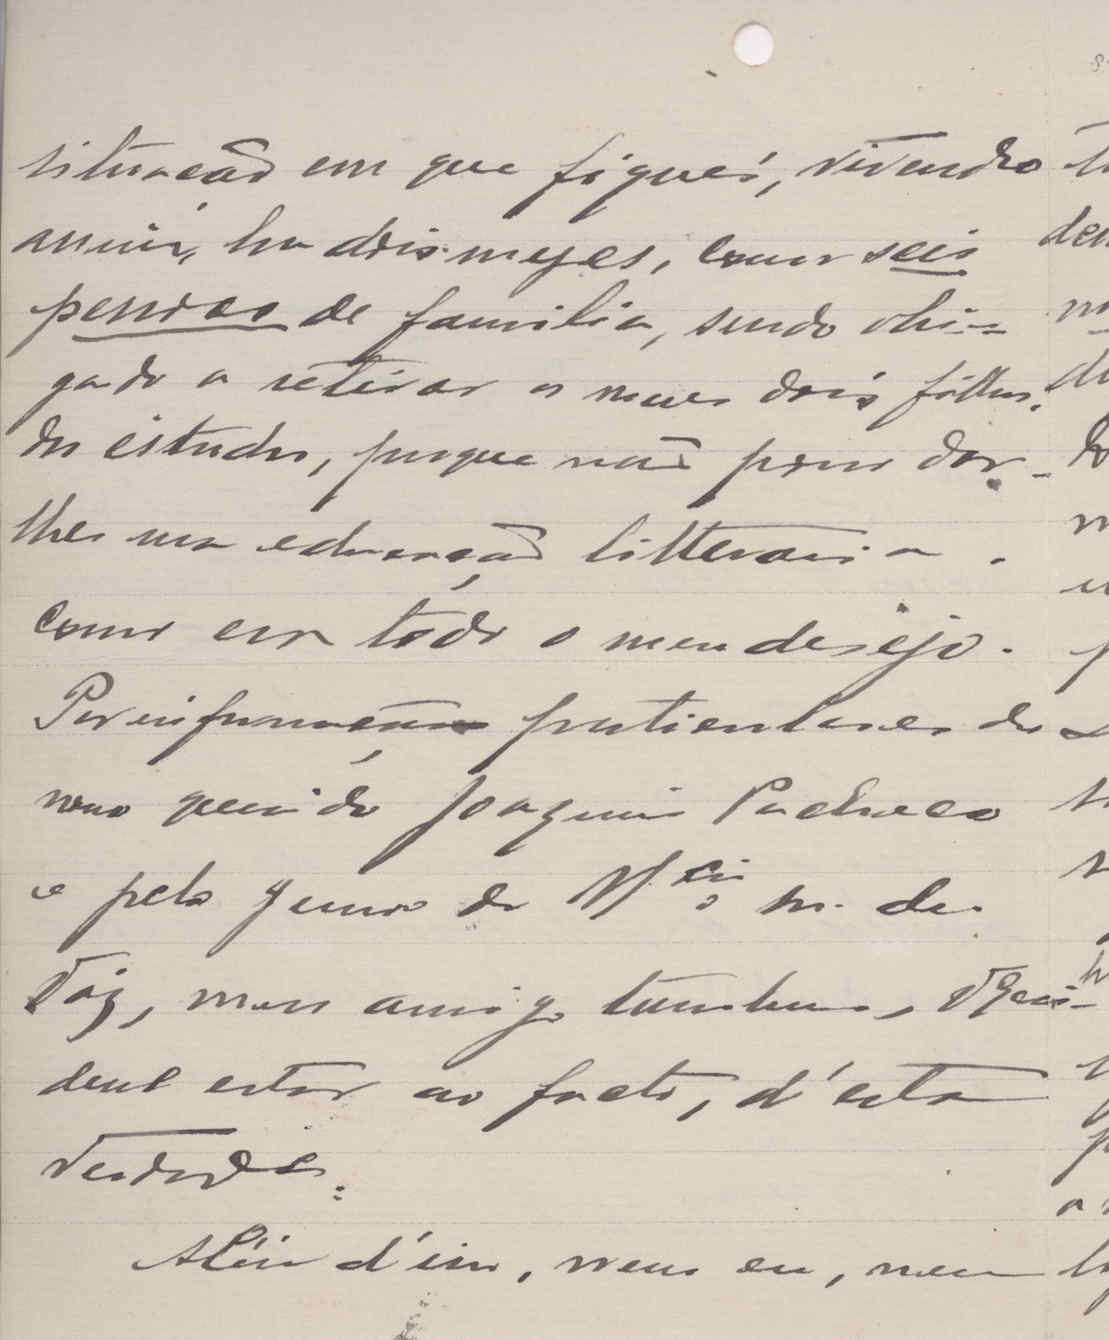 situação em que fiquei, vivendo
assim, ha dois mezes, com seis
pessoas de familia, sendo obri-
gado a retirar os meus dois filhos,
do estudo, porque não posso dar-
lhes uma educação litteraria
como era todo o meu desejo.
Por informações particulares do
nosso querido Joaquim Pacheco
e pelo genro do M. de
Váz, meu amigo tambem, VExcia
deve estar ao facto, d'esta
verdade.
Além d'isso, nem eu, nem